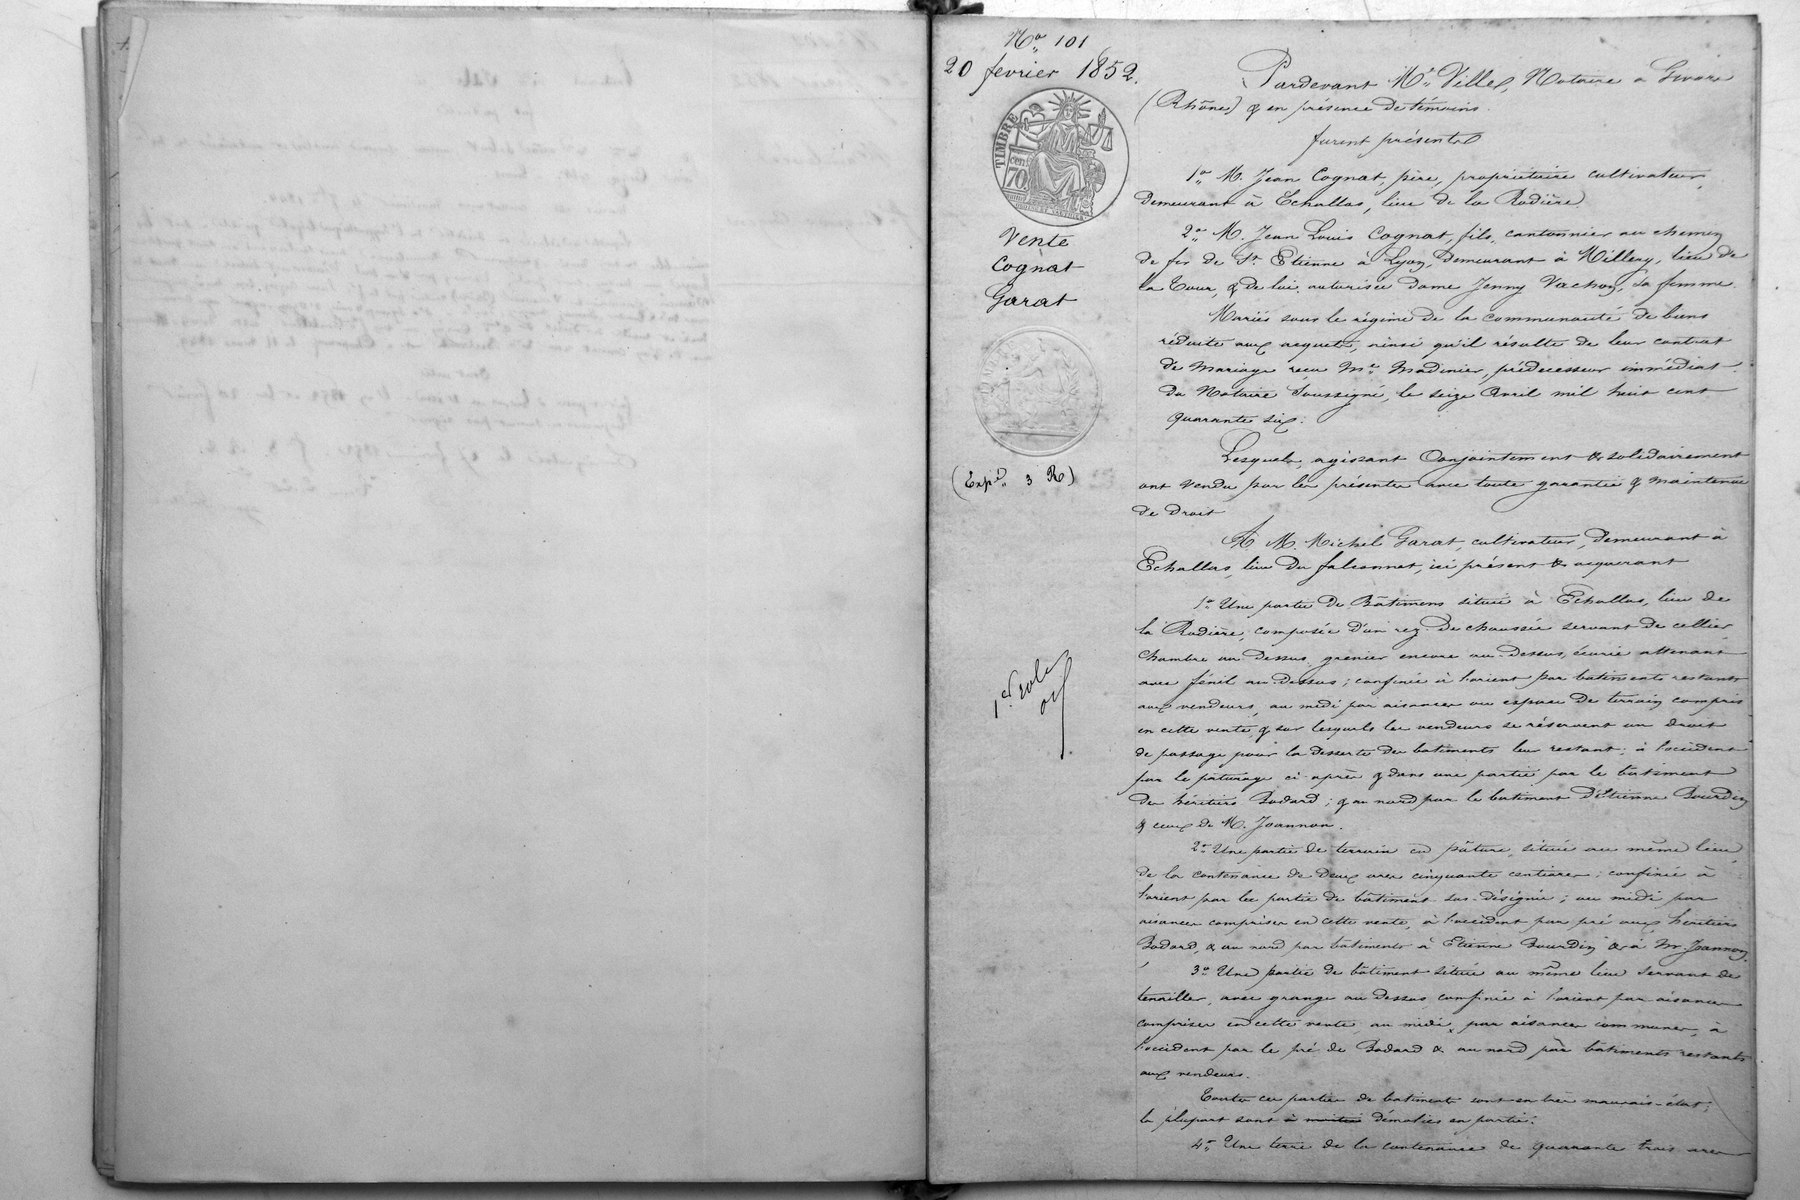 N° 101
20 fevrier 1852.
TIMBRE
cen.
70
Vente
Cognat
Garat
(Expé 3 R)
1er role
Pardevant Me Ville, Notaire a Givors
(Rhône) & en présence de témoins
furent présents
1° M. Jean Cognat, père, propriétaire cultivateur,
Demeurant à Echallas, lieu de la Rodière.
2° M. Jean Louis Cognat, fils, cantonnier au chemin
de fer de St Etienne à Lyon, Demeurant à Millery, lieu de
la Tour, & de lui autorisée Dame Jenny Vachon, sa femme.
Mariés sous le régime de la communauté de biens
réduite aux acquets, ainsi qu'il résulte de leur contrat
de Mariage reçu Me Madinier, prédécesseur immédiat
du Notaire Soussigné, le seize Avril mil huit cent
quarante six.
Lesquels, agissant Conjointement & solidairement
ont vendu par les présentes avec toute garantie & maintenue
de droit
A M. Michel Garat, cultivateur, Demeurant à
Echallas, lieu du falconnet, ici présent & acquerant
1° Une partie de Bâtimens située à Echallas, lieu de
la Rodière, composée d'un rez de chaussée servant de cellier
chambre au dessus, grenier encore au-Dessus, écurie attenant
avec fénil au-dessus; confinée à l'orient par batiments restants
aux vendeurs, au midi par aisances ou espace de terrain compris
en cette vente, & sur lesquels les vendeurs se réservent un droit
de passage pour la desserte des batiments leur restant; à l'occident
par le paturage ci après & dans une partie par le batiment
des héritiers Bodard; & au nord par le batiment d'Etienne Bourdin
& ceux de M. Joannon.
2° Une partie de terrain en pâture, située au même lieu
de la contenance de deux ares cinquante centiares; confinée à
l'orient par les partie de bâtiment sus-désignée; au midi par
aisances comprises en cette vente, à l'occident par pré aux héritiers
Bodard, & au nord par batiments à Etienne Bourdin & à Mr Joannon.
3° Une partie de bâtiment située au même lieu servant de
tenailler, avec grange au dessus confinée à l'orient par aisances
comprises en cette vente au midi, par aisances communes, à
l'occident par le pré de Bodard & au nord par bâtiments restants
aux vendeurs.
Toutes ces parties de batiments sont en très mauvais-état;
la plupart sont à moitié démolies en partie.
4° Une terre de la contenance de quarante trois ares